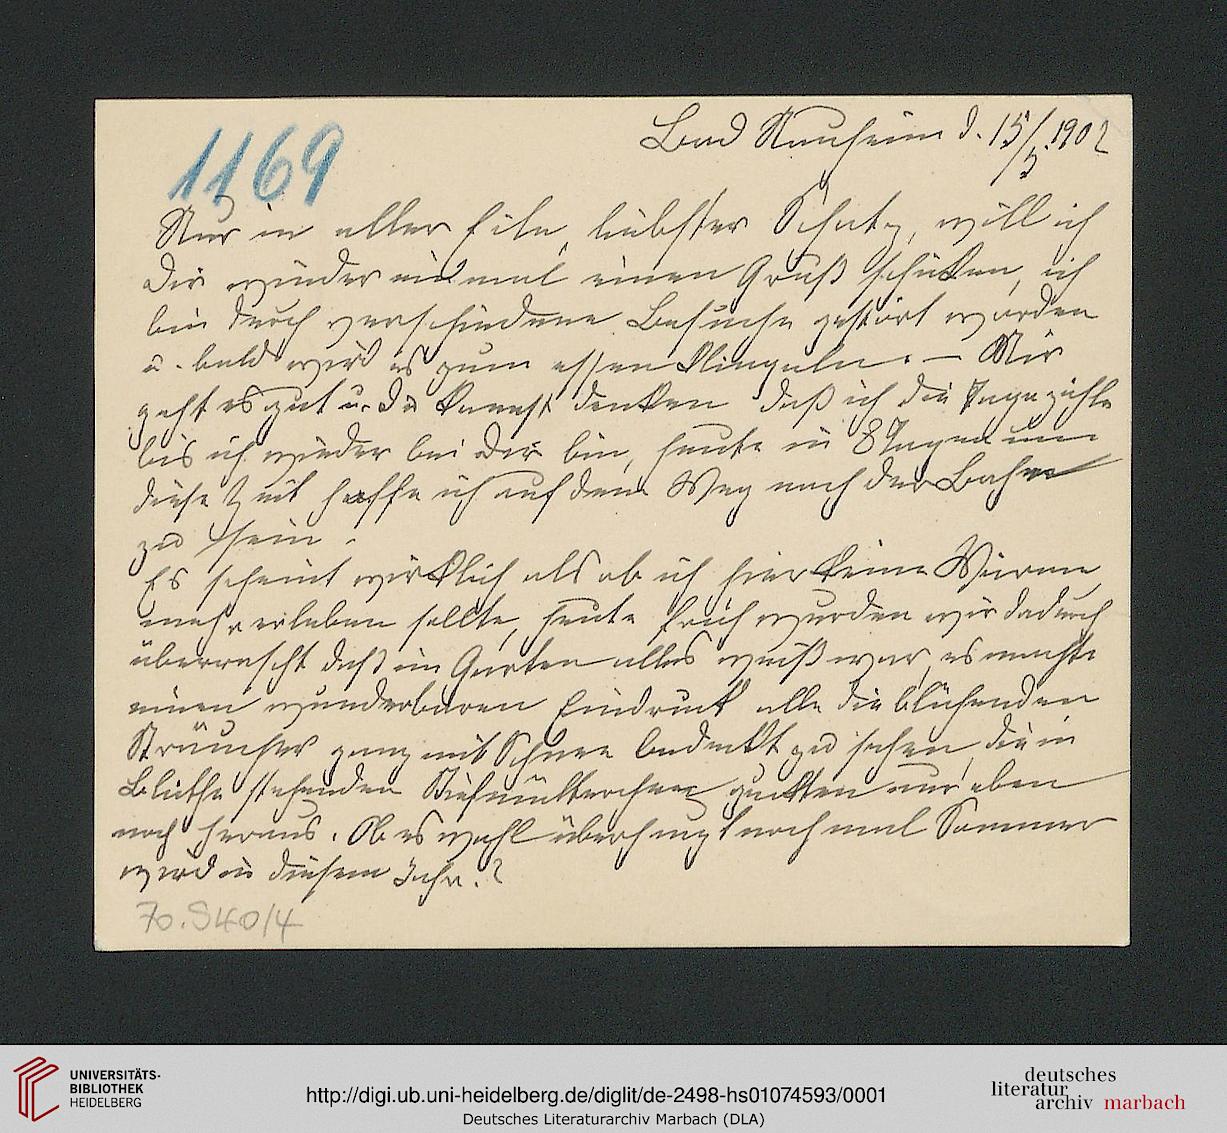 Bad Nauheim d. 15/5. 1902
1169
Nur in aller Eile, liebster Schatz, will ich
Dir wieder einmal einen Gruß schicken, ich
bin durch verschiedene Besuche gestört worden
u. bald wird es zum essen klingeln. – Mir
geht es gut u. Du kannst denken daß ich die Tage zähle
bis ich wieder bei Dir bin, heute in 8 Tagen um
diese Zeit hoffe ich auf dem Weg nach der Bahn
zu sein.
Es scheint wirklich als ob ich hier keine Wärme
mehr erleben sollte, heute früh wurden wir dadurch
überrascht daß im Garten alles weiß war, es machte
einen wunderbaren Eindruck alle die blühenden
Sträucher ganz mit Schnee bedeckt zu sehen, die in
Blüthe stehenden Stiefmütterchen guckten nur eben
noch heraus. Ob es wohl überhaupt noch mal Sommer
wird in diesem Jahr.?
70.940/4
UNIVERSITÄTS-
BIBLIOTHEK
HEIDELBERG
http://digi.ub.uni-heidelberg.de/diglit/de-2498-hs01074593/0001
Deutsches Literaturarchiv Marbach (DLA)
deutsches
literatur
archiv marbach